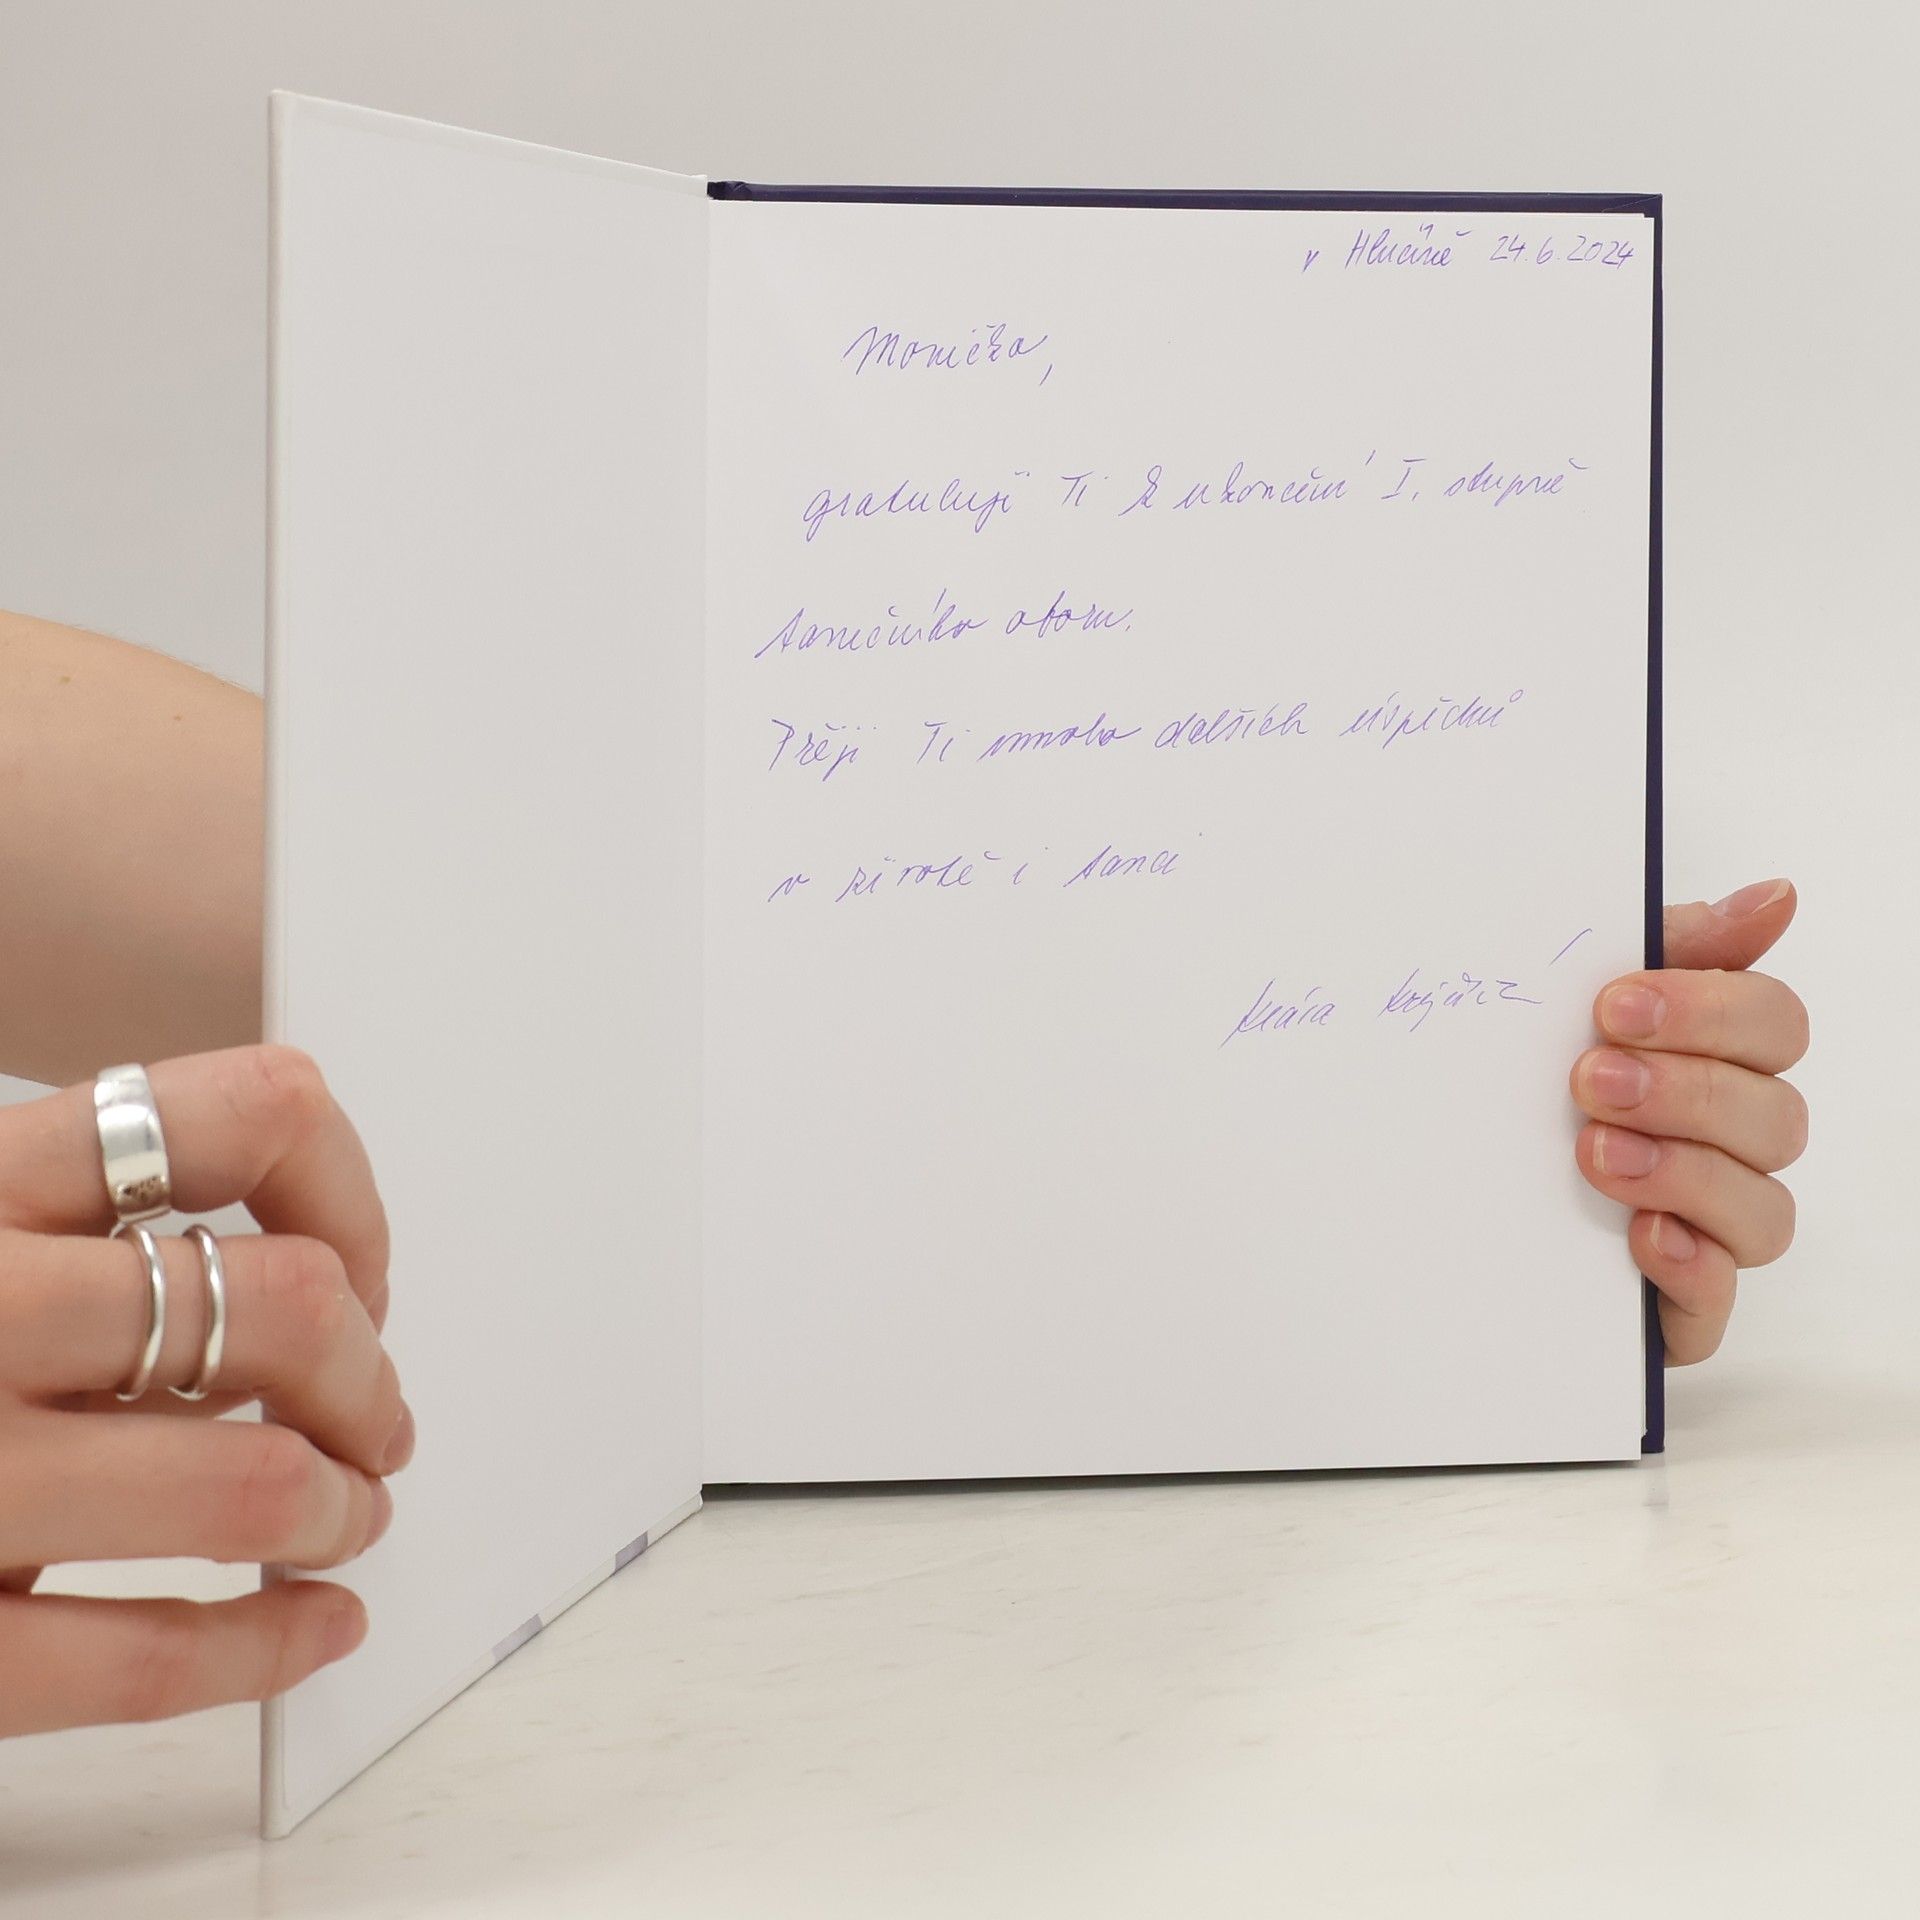 v Hlučíně 24.6.2024
Monička,
gratuluji Ti k ukončení I. stupně
tanečního oboru.
Přeji Ti mnoho dalších úspěchů
v životě i tanci
Klára